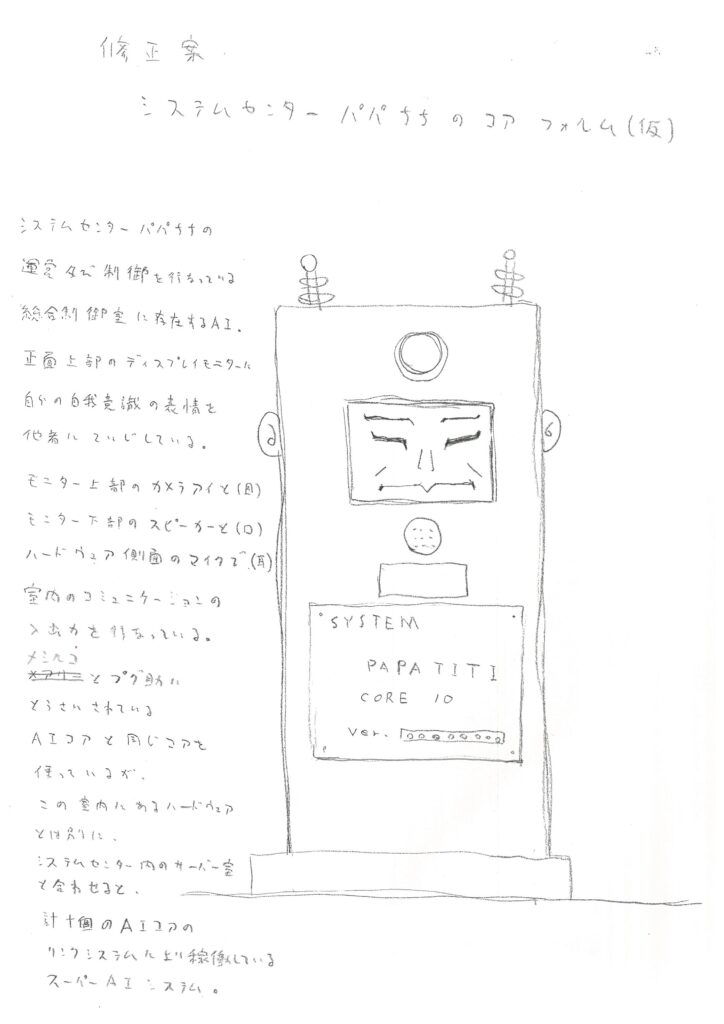 修正案
システムセンター パパチチの コア フォルム(仮)
システムセンター パパチチの
運営及び制御を行なっている
総合制御室に存在するAI.
正面上部のディスプレイモニターに
自分の自我意識の表情を
他者にていじしている。
モニター上部のカメラアイと(目)
モニター下部のスピーカーと(口)
ハードウェア側面のマイクで(耳)
室内のコミュニケーションの
入出力を行なっている。
とプグ助に
とうさいされている
AIコアと同じコアを
使っているが、
この室内にあるハードウェア
とは別に、
システムセンター内のサーバー室
と合わせると、
計十個のAIコアの
リンクシステムにより稼働している
スーパーAIシステム。
SYSTEM
PAPA TITI
CORE 10
Ver.